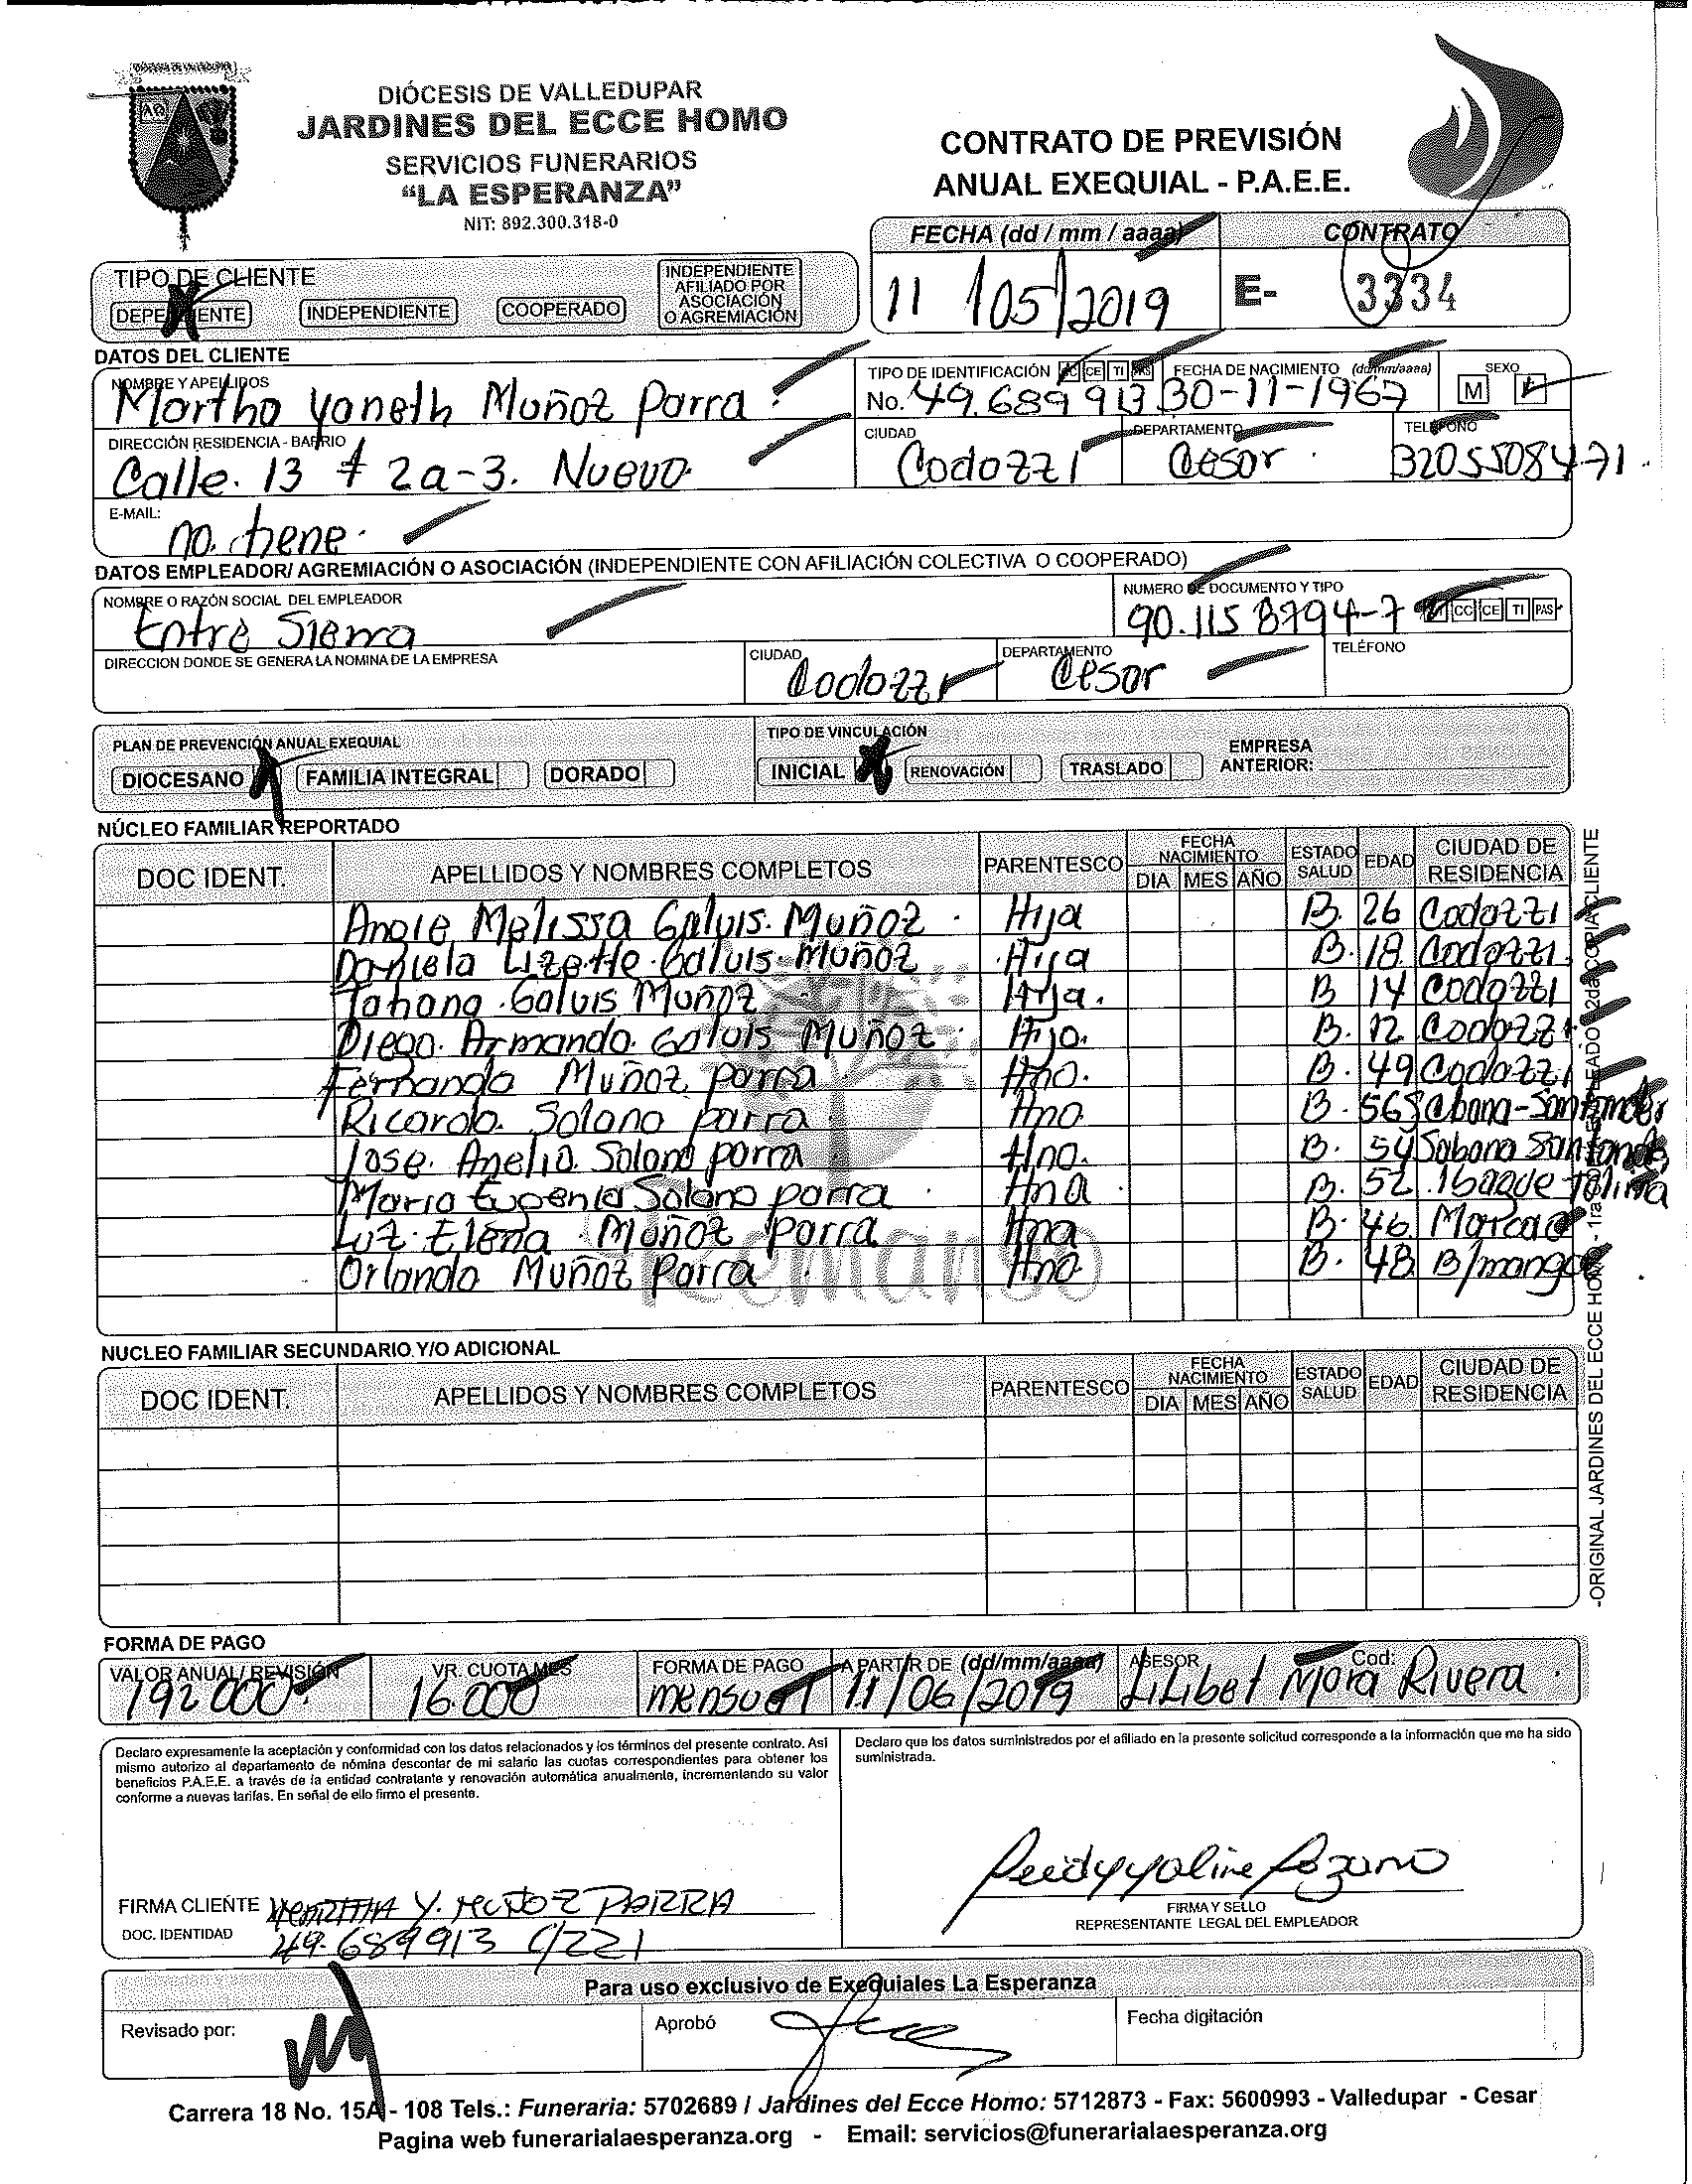 DIÓCESIS DE VALLEDUPAR
JARDINES DEL ECCE HOMO
SERVICIOS FUNERARIOS
“LA ESPERANZA”
NIT: 892.300.318-0
CONTRATO DE PREVISIÓN
ANUAL EXEQUIAL - P.A.E.E.
FECHA (dd / mm / aaaa) CONTRATO
11 / 05 / 2019 E- 3334
TIPO DE CLIENTE
DEPENDIENTE INDEPENDIENTE COOPERADO INDEPENDIENTE AFILIADO POR ASOCIACIÓN O AGREMIACIÓN
DATOS DEL CLIENTE
NOMBRE Y APELLIDOS TIPO DE IDENTIFICACIÓN CC CE TI PAS FECHA DE NACIMIENTO (dd/mm/aaaa) SEXO
Martha Yaneth Muñoz Parra No. 49.689913 30-11-1967 M F
DIRECCIÓN RESIDENCIA - BARRIO CIUDAD DEPARTAMENTO TELÉFONO
Calle. 13 # 2a-3. Nuevo. Codazzi Cesar. 3205508471.
E-MAIL:
no. tiene.
DATOS EMPLEADOR/ AGREMIACIÓN O ASOCIACIÓN (INDEPENDIENTE CON AFILIACIÓN COLECTIVA O COOPERADO)
NOMBRE O RAZÓN SOCIAL DEL EMPLEADOR NUMERO DE DOCUMENTO Y TIPO
Entre Sierra 90.115 8794-7 CC CE TI PAS
DIRECCION DONDE SE GENERA LA NOMINA DE LA EMPRESA CIUDAD DEPARTAMENTO TELÉFONO
Codazzi Cesar
PLAN DE PREVENCIÓN ANUAL EXEQUIAL TIPO DE VINCULACIÓN
DIOCESANO FAMILIA INTEGRAL DORADO INICIAL RENOVACIÓN TRASLADO EMPRESA ANTERIOR:
NÚCLEO FAMILIAR REPORTADO
DOC IDENT. APELLIDOS Y NOMBRES COMPLETOS PARENTESCO FECHA NACIMIENTO DIA MES AÑO ESTADO SALUD EDAD CIUDAD DE RESIDENCIA
Angie Melissa Galvis. Muñoz. Hija B. 26 Codazzi
Daniela Lizette. Galvis Muñoz Hija B. 18 Codazzi
Tatiana. Galvis Muñoz Hija. B 14 Codazzi
Diego. Armando. Galvis Muñoz. Hijo. B. 12 Codazzi
Fernando Muñoz Parra Hno. B. 49 Codazzi
Ricardo. Solano Parra Hno B. 56 Sabana-Santander
Jose. Anelio. Solano Parra Hno. B. 54 Sabana Santander
Maria Eugenia Solano Parra. Hna. B. 52. Ibague Tolima
Luz. Elena Muñoz Parra Hna B. 46.
Orlando Muñoz Parra Hno B. 48 B/manga
Remanso
NUCLEO FAMILIAR SECUNDARIO Y/O ADICIONAL
DOC IDENT. APELLIDOS Y NOMBRES COMPLETOS PARENTESCO FECHA NACIMIENTO DIA MES AÑO ESTADO SALUD EDAD CIUDAD DE RESIDENCIA
-ORIGINAL JARDINES DEL ECCE HOMO - 1ra COPIA EMPLEADO - 2da COPIA CLIENTE
FORMA DE PAGO
VALOR ANUAL/ REVISIÓN VR. CUOTA MES FORMA DE PAGO A PARTIR DE (dd/mm/aaaa) ASESOR Cod:
192 000 16.000 mensual 11/06/2019 Lilibet Mora Rivera.
Declaro expresamente la aceptación y conformidad con los datos relacionados y los términos del presente contrato. Así
mismo autorizo al departamento de nómina descontar de mi salario las cuotas correspondientes para obtener los
beneficios P.A.E.E. a través de la entidad contratante y renovación automática anualmente, incrementando su valor
conforme a nuevas tarifas. En señal de ello firmo el presente.
Declaro que los datos suministrados por el afiliado en la presente solicitud corresponde a la información que me ha sido
suministrada.
FIRMA CLIENTE MARTHA Y. MUÑOZ PARRA
DOC. IDENTIDAD 49.689913 C/ZZI
FIRMA Y SELLO
REPRESENTANTE LEGAL DEL EMPLEADOR
Para uso exclusivo de Exequiales La Esperanza
Revisado por: Aprobó Fecha digitación
Carrera 18 No. 15A - 108 Tels.: Funeraria: 5702689 / Jardines del Ecce Homo: 5712873 - Fax: 5600993 - Valledupar - Cesar
Pagina web funerarialaesperanza.org - Email: servicios@funerarialaesperanza.org